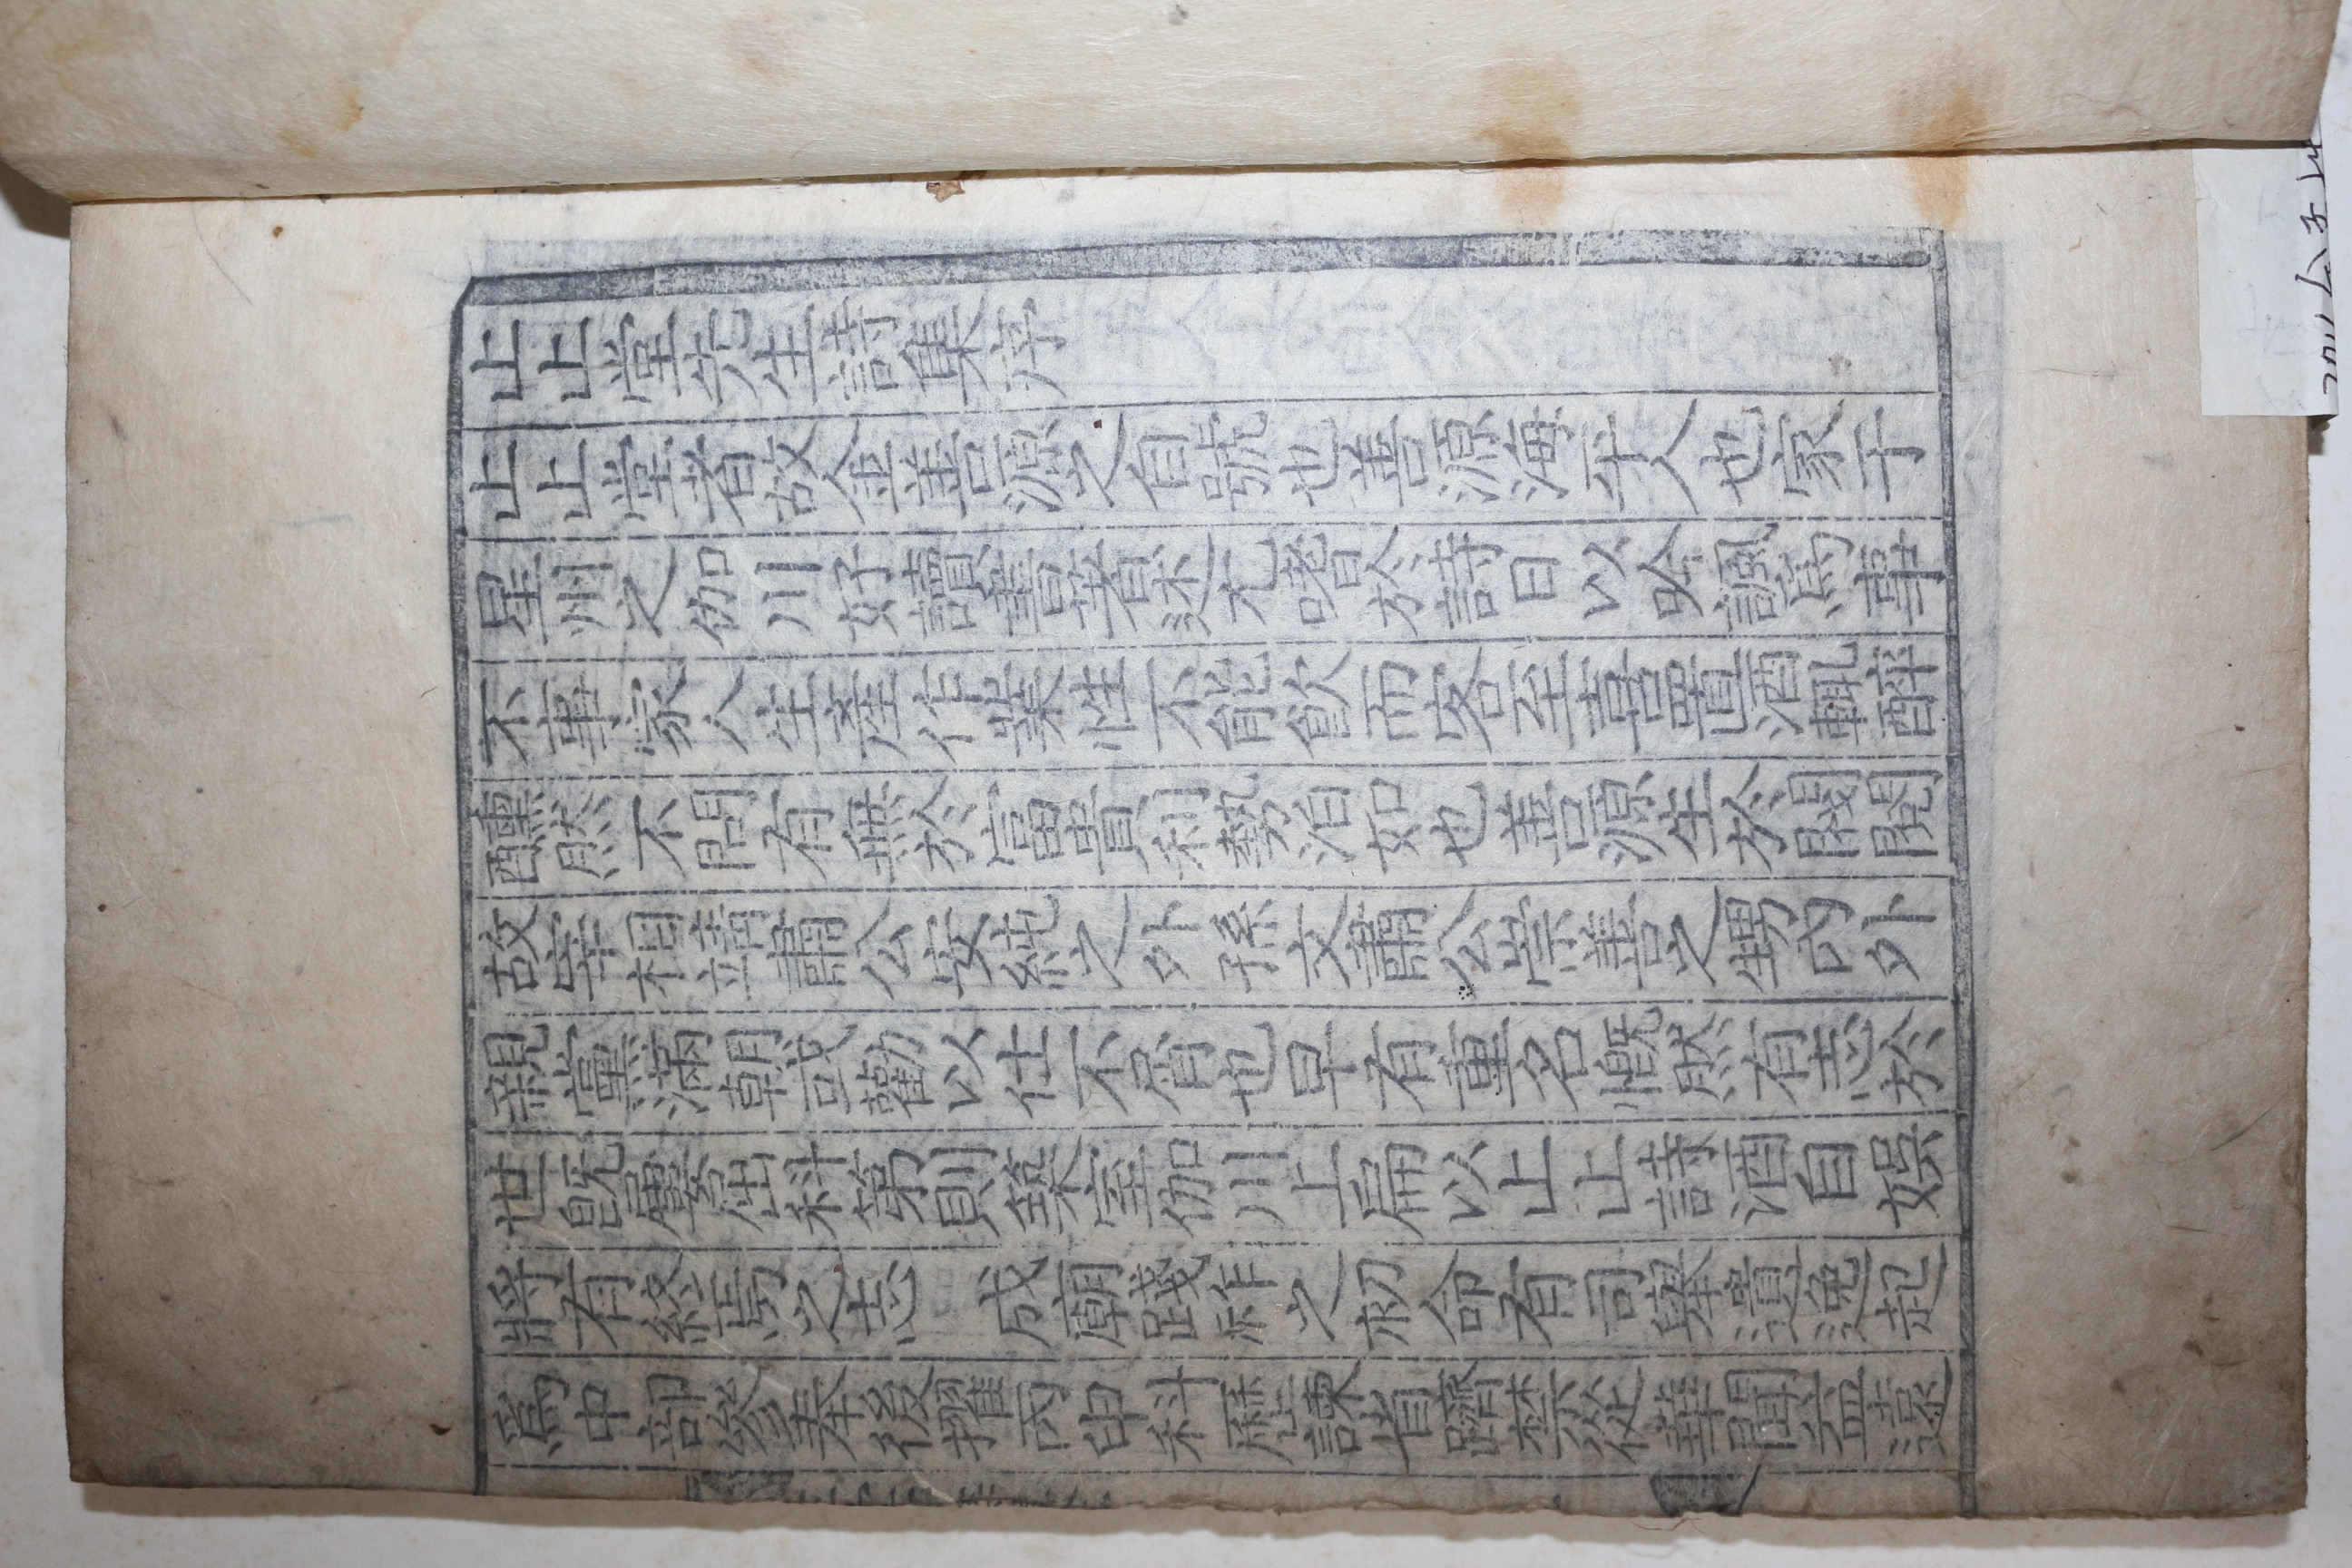 止止堂先生詩集序
止止堂者故金善源之自號也善源海平人也家于
星州之伽川好讀書著述尤嗜於詩日以吟諷爲事
不事家人生産作業性不能飮而客至喜置酒輒醉
醺然不問有無於富貴利勢泊如也善源生於閥閱
故宰相靖肅公安純之外孫文肅公崇善之甥內外
親黨滿朝或勸以仕不屑也早有重名慨然有志於
世旣屢屈科第則築室伽川上扁以止止詩酒自娛
將有終焉之志 成廟踐祚之初命有司擧遺逸起
爲中部參奉後擢丙申科歷諫省躋禁從華聞益遠